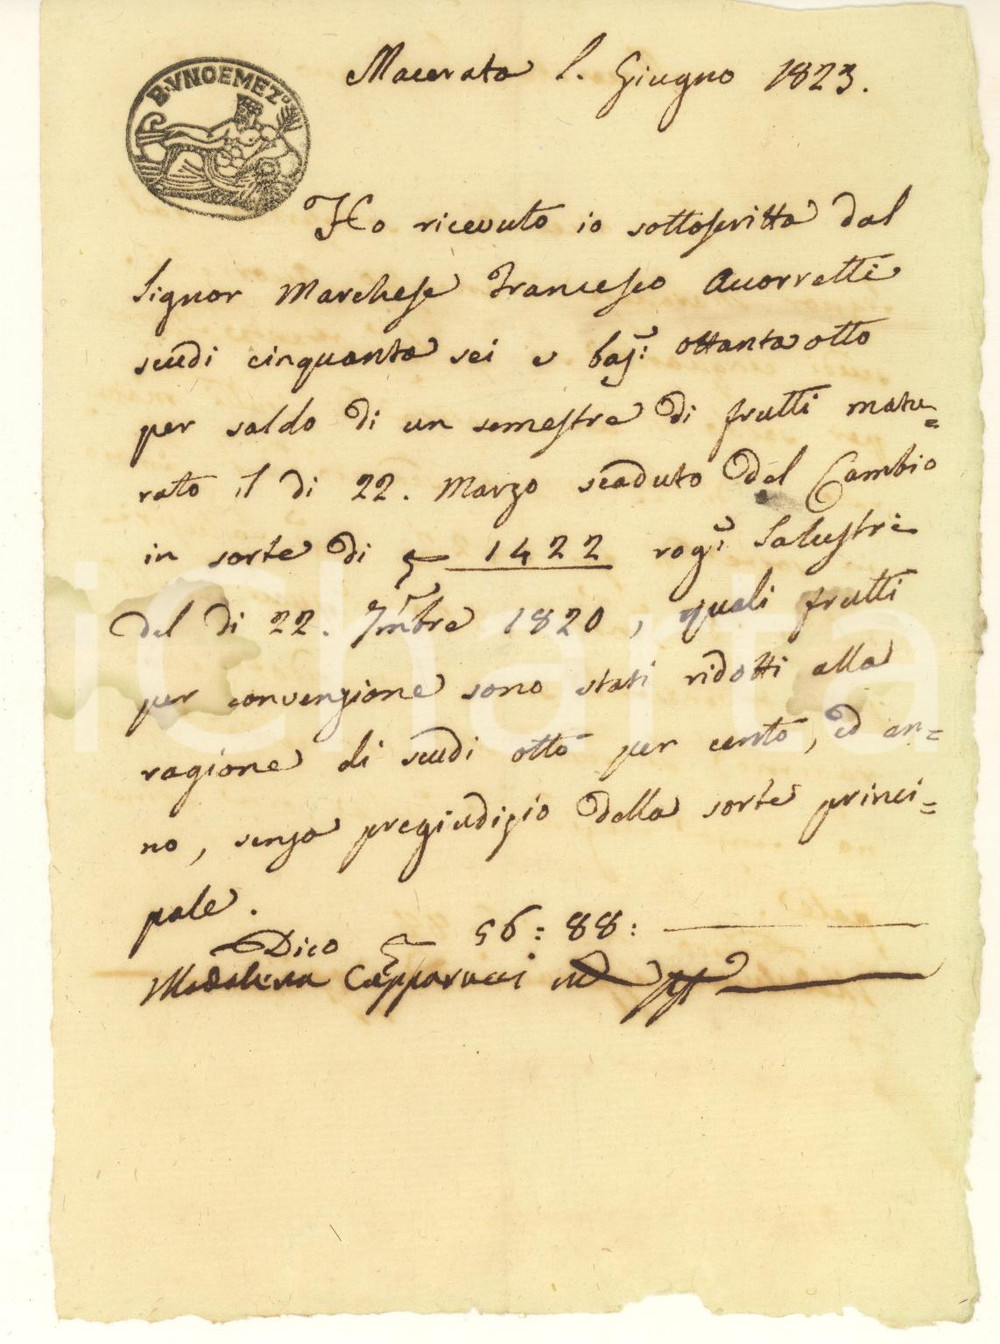 B. VNOEMEZO
Macerata 1. Giugno 1823.
Ho ricevuto io sottoscritta dal
Signor Marchese Francesco Accorretti
scudi cinquanta sei e baj:i ottanta otto
per saldo di un semestre di frutti matu=
rato il di 22. Marzo scaduto del Cambio
in sorte di 1422 rog:i Salustri
del di 22. 7mbre 1820, quali frutti
per convenzione sono stati ridotti alla
ragione di scudi otto per cento, ed an=
no, senza pregiudizio della sorte princi=
pale.
Dico 56:88:
Madalena Capparucci
iCharta